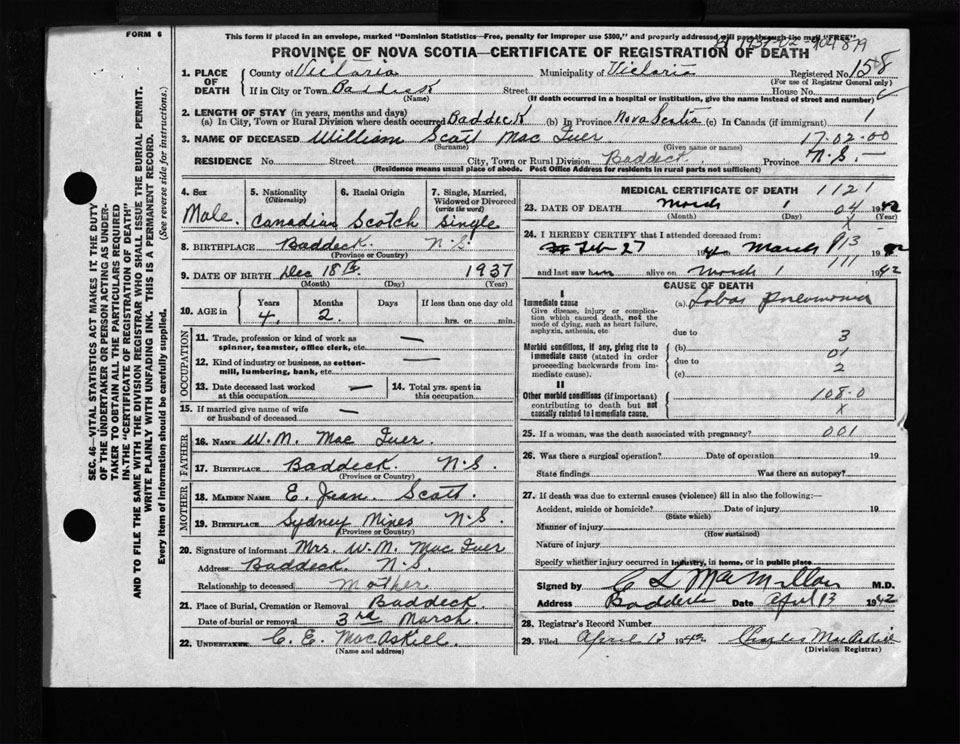 FORM 6
This form if placed in an envelope, marked "Dominion Statistics—Free, penalty for improper use $300," and properly addressed will pass through the mail "FREE"
PROVINCE OF NOVA SCOTIA—CERTIFICATE OF REGISTRATION OF DEATH
1. PLACE OF DEATH
County of Victoria Municipality of Victoria Registered No. 158
(For use of Registrar General only)
If in City or Town Baddeck Street House No.
(Name) (If death occurred in a hospital or institution, give the name instead of street and number)
2. LENGTH OF STAY (in years, months and days)
(a) In City, Town or Rural Division where death occurred Baddeck (b) In Province Nova Scotia (c) In Canada (if immigrant) 1
3. NAME OF DECEASED William Scott Mac Iver 17-02-00
(Surname) (Given name or names)
RESIDENCE No. Street City, Town or Rural Division Baddeck. Province N.S.
(Residence means usual place of abode. Post Office Address for residents in rural parts not sufficient)
4. Sex Male.
5. Nationality (Citizenship) Canadian
6. Racial Origin Scotch
7. Single, Married, Widowed or Divorced (write the word) Single
8. BIRTHPLACE Baddeck. N.S.
(Province or Country)
9. DATE OF BIRTH Dec 18th. 1937
(Month) (Day) (Year)
10. AGE in Years 4. Months 2. Days If less than one day old hrs. or min.
OCCUPATION
11. Trade, profession or kind of work as spinner, teamster, office clerk, etc. —
12. Kind of industry or business, as cotton-mill, lumbering, bank, etc. —
13. Date deceased last worked at this occupation —
14. Total yrs. spent in this occupation
15. If married give name of wife or husband of deceased —
FATHER
16. NAME W. M. Mac Iver.
17. BIRTHPLACE Baddeck. N.S.
(Province or Country)
MOTHER
18. MAIDEN NAME E. Jean. Scott.
19. BIRTHPLACE Sydney Mines N.S.
(Province or Country)
20. Signature of informant Mrs. W. M. Mac Iver
Address Baddeck N.S.
Relationship to deceased Mother
21. Place of Burial, Cremation or Removal Baddeck.
Date of burial or removal 3rd March.
22. UNDERTAKER C. E. MacAskill
(Name and address)
MEDICAL CERTIFICATE OF DEATH 1121
23. DATE OF DEATH March 1 04 1942
(Month) (Day) (Year)
24. I HEREBY CERTIFY that I attended deceased from:
Feb 27 March
and last saw him alive on March 1 1942
CAUSE OF DEATH
I
Immediate cause
Give disease, injury or complication which caused death, not the mode of dying, such as heart failure, asphyxia, asthenia, etc.
(a) Lobar Pneumonia
due to 3
Morbid conditions, if any, giving rise to immediate cause (stated in order proceeding backwards from immediate cause).
(b) 01
due to 2
(c)
II
Other morbid conditions (if important) contributing to death but not causally related to immediate cause.
108-0
X
25. If a woman, was the death associated with pregnancy? 001
26. Was there a surgical operation? Date of operation 19
State findings Was there an autopsy?
27. If death was due to external causes (violence) fill in also the following:—
Accident, suicide or homicide? Date of injury 19
(State which)
Manner of injury
(How sustained)
Nature of injury
Specify whether injury occurred in industry, in home, or in public place
Signed by C L MacMillan M.D.
Address Baddeck Date April 13 1942
28. Registrar's Record Number
29. Filed April 13 1942 Charles MacAskill
(Division Registrar)
SEC. 46—VITAL STATISTICS ACT MAKES IT THE DUTY
OF THE UNDERTAKER OR PERSON ACTING AS UNDER-
TAKER TO OBTAIN ALL THE PARTICULARS REQUIRED
IN THE "CERTIFICATE OF REGISTRATION OF DEATH"
AND TO FILE THE SAME WITH THE DIVISION REGISTRAR WHO SHALL ISSUE THE BURIAL PERMIT.
WRITE PLAINLY WITH UNFADING INK. THIS IS A PERMANENT RECORD.
Every item of information should be carefully supplied. (See reverse side for instructions.)